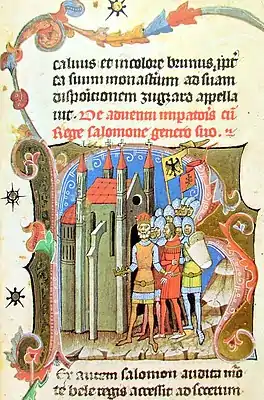 caluus et in colore brunus, ipͥt
ca suum monasterium ad suam
dispoicionem zugzard appella
uit. De aduentu impatoris cū
Rege salomone genero suo.
Ex autem salomon audita mo
te bele regis accessit ad serenum